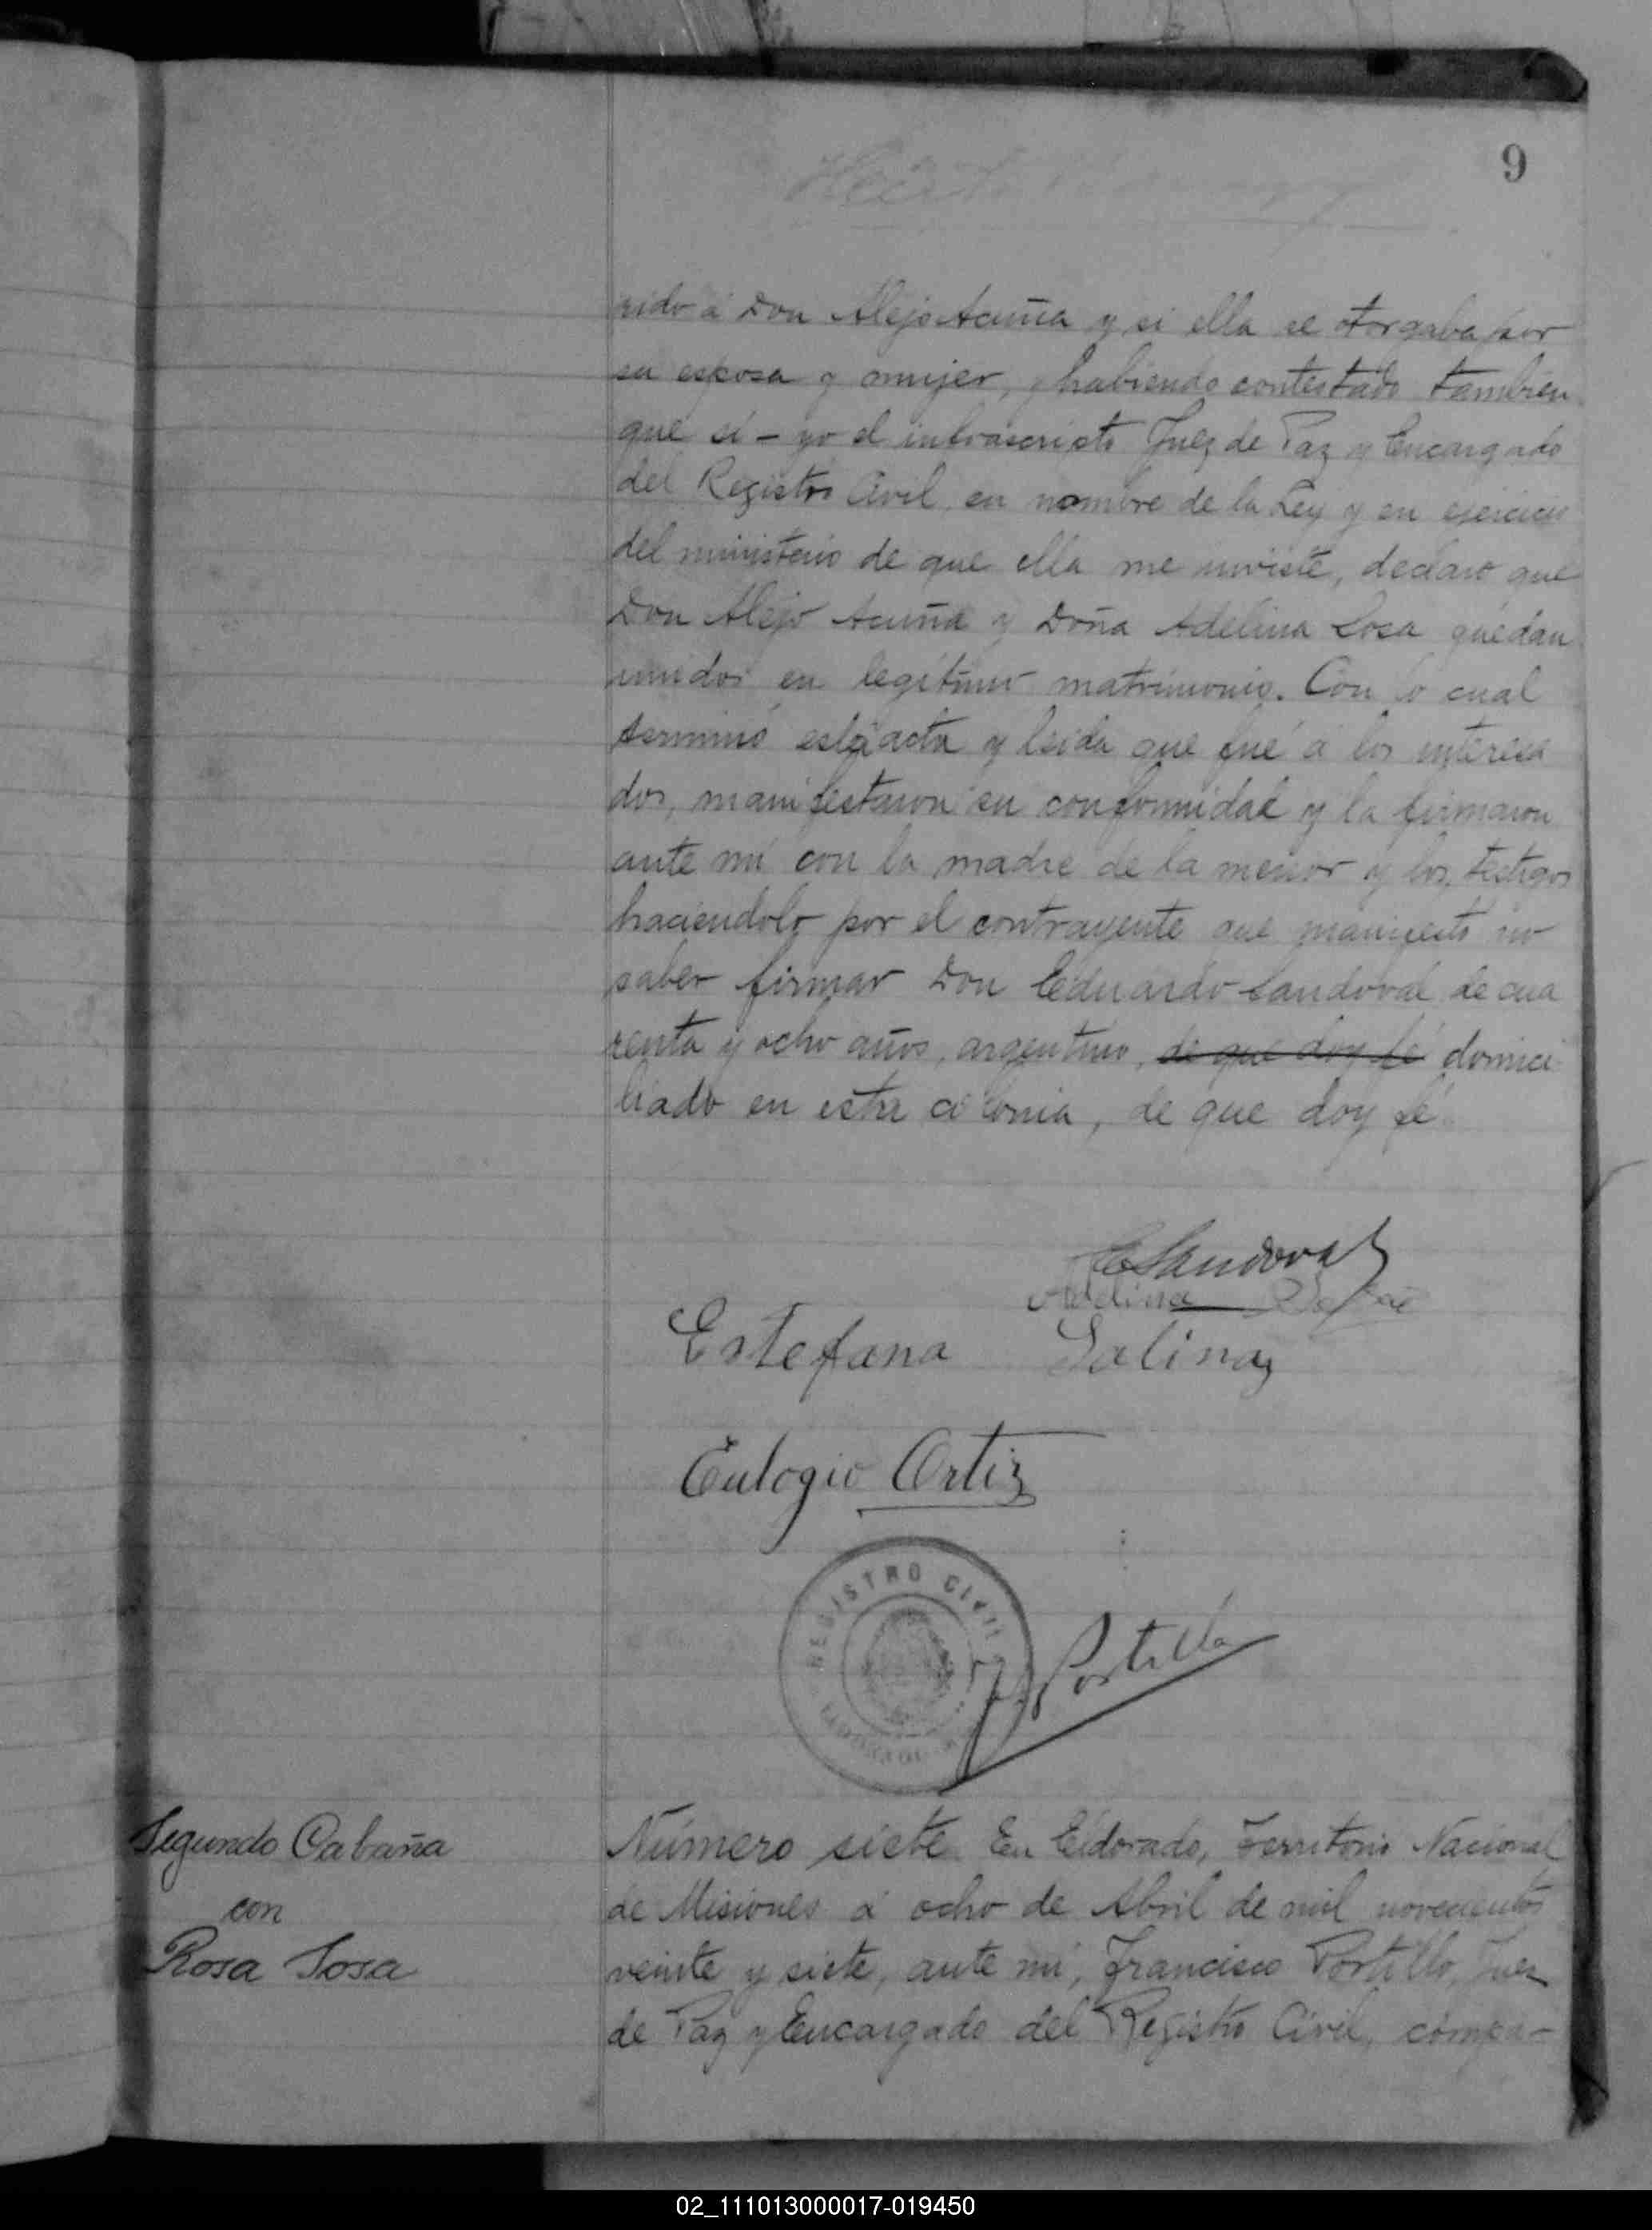 9
rido á Don Alejo Acuña y si ella se otorgaba por
su esposa y mujer, y habiendo contestado tambien
que sí - yo el infrascripto Juez de Paz y Encargado
del Registro Civil, en nombre de la Ley y en ejercicio
del ministerio de que ella me inviste, declaro que
Don Alejo Acuña y Doña Adelina Sosa quedan
unidos en legítimo matrimonio. Con lo cual
terminó esta acta y leida que fué á los interesa
dos, manifestaron su conformidad y la firmaron
ante mí con la madre de la menor y los testigos
haciendolo por el contrayente que manifestó no
saber firmar Don Eduardo Sandoval de cua
renta y ocho años, argentino, de que doy fé domici
liado en esta colonia, de que doy fé
ESandoval
Adelina
Estefana Salinaz
Eulogio Ortiz
REGISTRO CIVIL
ELDORADO
F. Portillo
Segundo Cabaña
con
Rosa Sosa
Número siete En Eldorado, Territorio Nacional
de Misiones á ocho de Abril de mil novecientos
veinte y siete, ante mí, Francisco Portillo, Juez
de Paz y Encargado del Registro Civil, compa-
02_111013000017-019450